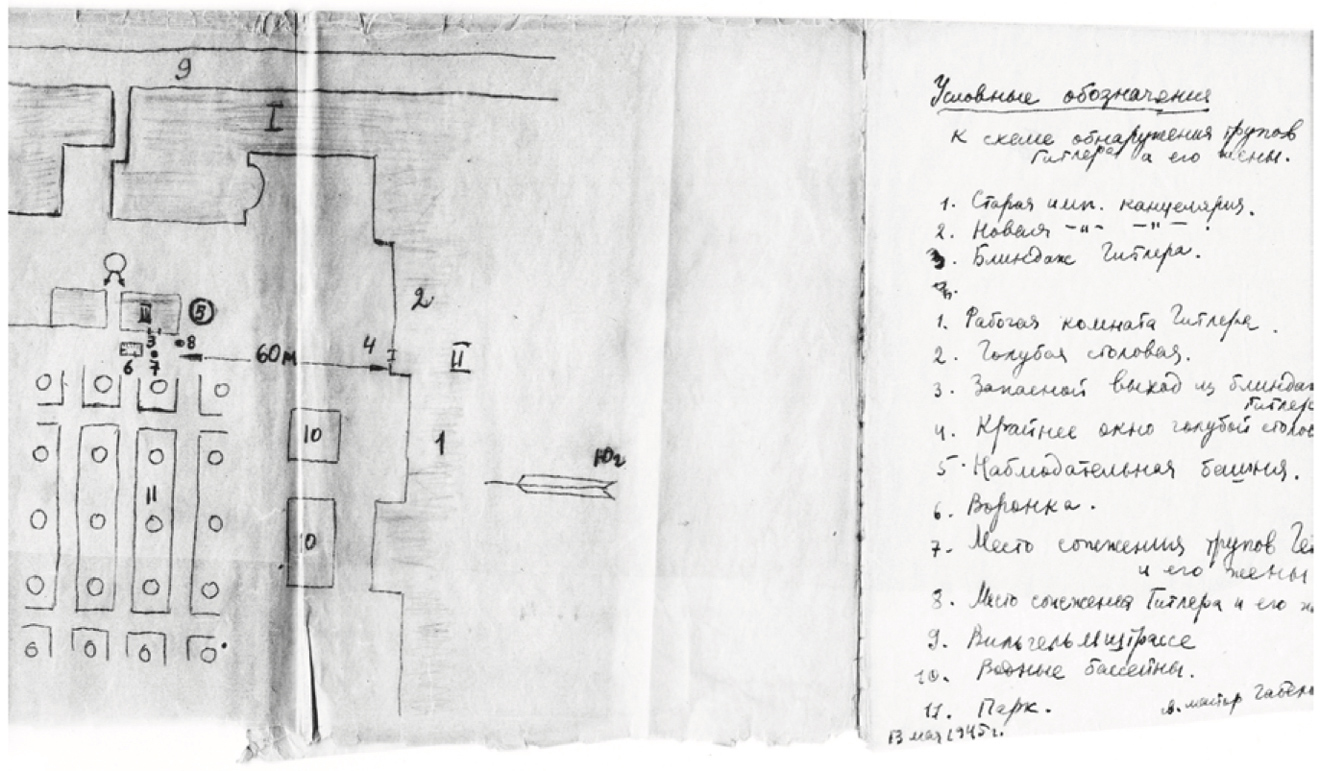 9
I
2
III
5
3
8
6
7
60м
4
II
10
1
Юг
11
10
Условные обозначения
к схеме обнаружения трупов
Гитлера и его жены.
1. Старая имп. канцелярия.
2. Новая -"- -"- .
3. Блиндаж Гитлера.
1. Рабочая комната Гитлера.
2. Голубая столовая.
3. Запасной выход из блиндаж
Гитлера
4. Крайнее окно голубой столов
5. Наблюдательная башня.
6. Воронка.
7. Место сожжения трупов Ге
и его жены
8. Место сожжения Гитлера и его ж
9. Вильгельмштрассе
10. Водные бассейны.
11. Парк.
13 мая 1945 г.